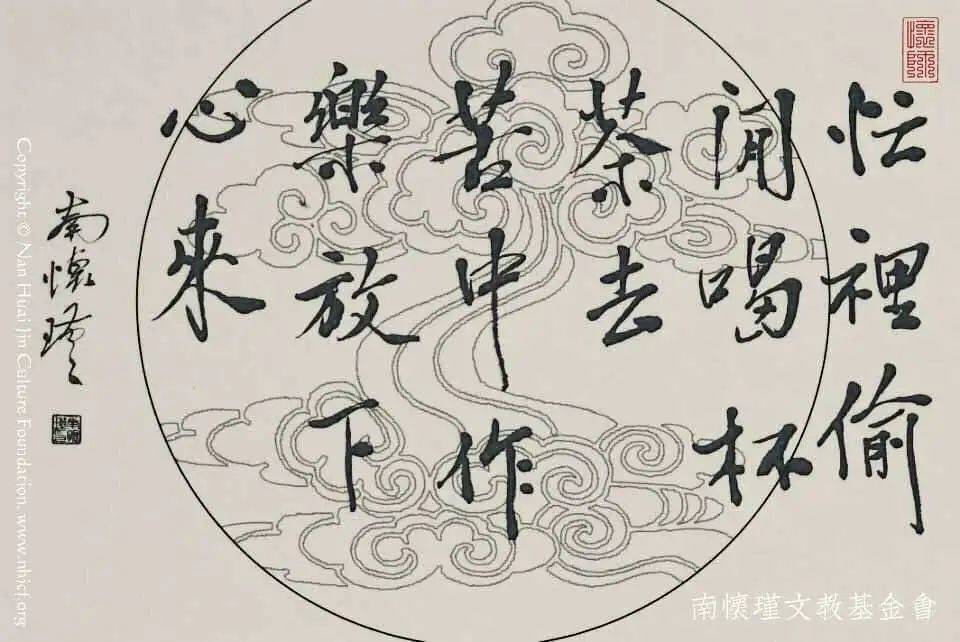 懷師
忙裡偷
閒喝杯
茶去
苦中作
樂放下
心來
南懷瑾
Copyright © Nan Huai Jin Culture Foundation. www.nhjcf.org
南懷瑾文教基金會